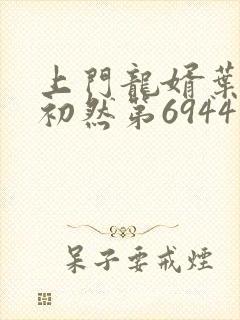 上門龍婿葉
初然第6944
呆子要戒煙